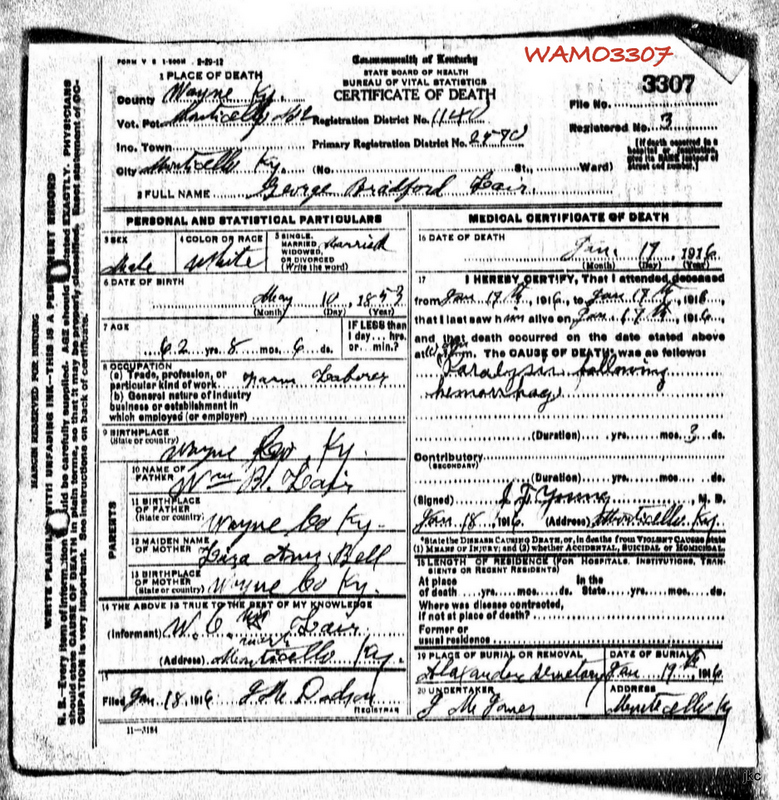 WAMO3307
FORM V S 1-500M 2-29-12
Commonwealth of Kentucky
STATE BOARD OF HEALTH
BUREAU OF VITAL STATISTICS
CERTIFICATE OF DEATH
3307
1 PLACE OF DEATH
County Wayne Ky.
Vot. Pct. Monticello
Registration District No. 1140
File No.
Inc. Town
Primary Registration District No. 2470
Registered No. 3
City Monticello Ky. (No. St., Ward)
[If death occurred in a hospital or institution, give its NAME instead of street and number.]
2 FULL NAME George Bradford Lair
PERSONAL AND STATISTICAL PARTICULARS
3 SEX
Male
4 COLOR OR RACE
White
5 SINGLE, MARRIED, WIDOWED, OR DIVORCED (Write the word)
Married
6 DATE OF BIRTH
May 10, 1853
(Month) (Day) (Year)
7 AGE
62 yrs. 8 mos. 6 ds.
IF LESS than 1 day... hrs. or... min.?
8 OCCUPATION
(a) Trade, profession, or particular kind of work Farm Laborer
(b) General nature of industry business or establishment in which employed (or employer)
9 BIRTHPLACE
(State or country) Wayne Co, Ky.
PARENTS
10 NAME OF FATHER Wm B. Lair
11 BIRTHPLACE OF FATHER (State or country) Wayne Co Ky.
12 MAIDEN NAME OF MOTHER Liza Ann Bell
13 BIRTHPLACE OF MOTHER (State or country) Wayne Co Ky.
14 THE ABOVE IS TRUE TO THE BEST OF MY KNOWLEDGE
(Informant) W. C. Lair
(Address) Monticello Ky.
15
Filed Jan 18 1916 J. M. Dodson
REGISTRAR
11-3184
MEDICAL CERTIFICATE OF DEATH
16 DATE OF DEATH
Jan. 17, 1916
(Month) (Day) (Year)
17 I HEREBY CERTIFY, That I attended deceased
from Jan 17th, 1916, to Jan 17th, 1916
that I last saw him alive on Jan 17th, 1916
and that death occurred on the date stated above
at m. The CAUSE OF DEATH was as follows:
Paralysis following
hemorrhage
(Duration) yrs. mos. 3 ds.
Contributory
(SECONDARY)
(Duration) yrs. mos. ds.
(Signed) J. F. Young, M. D.
Jan 18, 1916 (Address) Monticello Ky.
*State the DISEASE CAUSING DEATH, or, in deaths from VIOLENT CAUSES state
(1) MEANS OF INJURY; and (2) whether ACCIDENTAL, SUICIDAL or HOMICIDAL.
18 LENGTH OF RESIDENCE (FOR HOSPITALS, INSTITUTIONS, TRANSIENTS OR RECENT RESIDENTS)
At place of death yrs. mos. ds. In the State yrs. mos. ds.
Where was disease contracted,
if not at place of death?
Former or
usual residence
19 PLACE OF BURIAL OR REMOVAL
Alexander Semetary
DATE OF BURIAL
Jan 19th, 1916
20 UNDERTAKER
J M Jones
ADDRESS
Monticello Ky
MARGIN RESERVED FOR BINDING
WRITE PLAINLY WITH UNFADING INK—THIS IS A PERMANENT RECORD
N. B.—Every item of information should be carefully supplied. AGE should be stated EXACTLY. PHYSICIANS
should state CAUSE OF DEATH in plain terms, so that it may be properly classified. Exact statement of OC-
CUPATION is very important. See instructions on back of certificate.
jkc